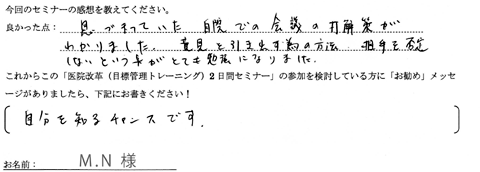 今回のセミナーの感想を教えてください。
良かった点：思いづまっていた自院での会議の打解策が
わかりました。意見を引き出す為の方法、相手を否定
しないという事がとても勉強になりました。
これからこの「医院改革（目標管理トレーニング）2日間セミナー」の参加を検討している方に「お勧め」メッセ
ージがありましたら、下記にお書きください！
自分を知るチャンスです。
お名前： M.N 様